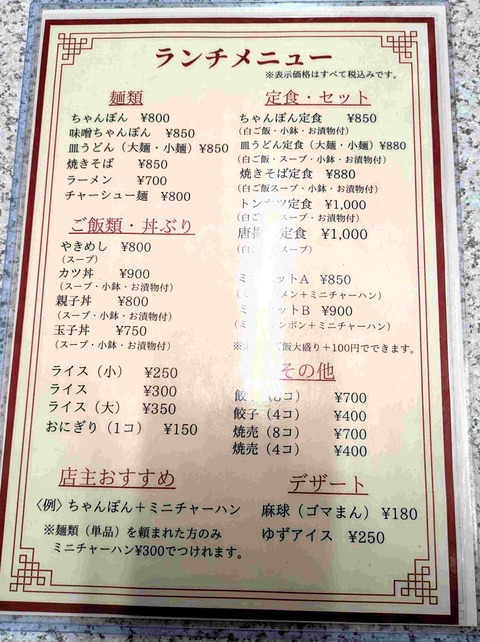 ランチメニュー
※表示価格はすべて税込みです。
麺類
ちゃんぽん ¥800
味噌ちゃんぽん ¥850
皿うどん（太麺・小麺）¥850
焼きそば ¥850
ラーメン ¥700
チャーシュー麺 ¥800
ご飯類・丼ぶり
やきめし ¥800
（スープ）
カツ丼 ¥900
（スープ・小鉢・お漬物付）
親子丼 ¥800
（スープ・小鉢・お漬物付）
玉子丼 ¥750
（スープ・小鉢・お漬物付）
ライス（小） ¥250
ライス ¥300
ライス（大） ¥350
おにぎり（1コ） ¥150
店主おすすめ
〈例〉ちゃんぽん＋ミニチャーハン
※麺類（単品）を頼まれた方のみ
ミニチャーハン¥300でつけれます。
定食・セット
ちゃんぽん定食 ¥850
（白ご飯・小鉢・お漬物付）
皿うどん定食（太麺・小麺）¥880
（白ご飯・スープ・小鉢・お漬物付）
焼きそば定食 ¥880
（白ご飯スープ・小鉢・お漬物付）
トンカツ定食 ¥1,000
（白ご スープ・お漬物付）
唐 定食 ¥1,000
（白 スープ）
ミ ットA ¥850
（ ーメン＋ミニチャーハン）
ミ ットB ¥900
（ミ ンポン＋ミニチャーハン）
※ ご飯大盛り＋100円でできます。
その他
餃 コ） ¥700
餃子（4コ） ¥400
焼売（8コ） ¥700
焼売（4コ） ¥400
デザート
麻球（ゴマまん） ¥180
ゆずアイス ¥250